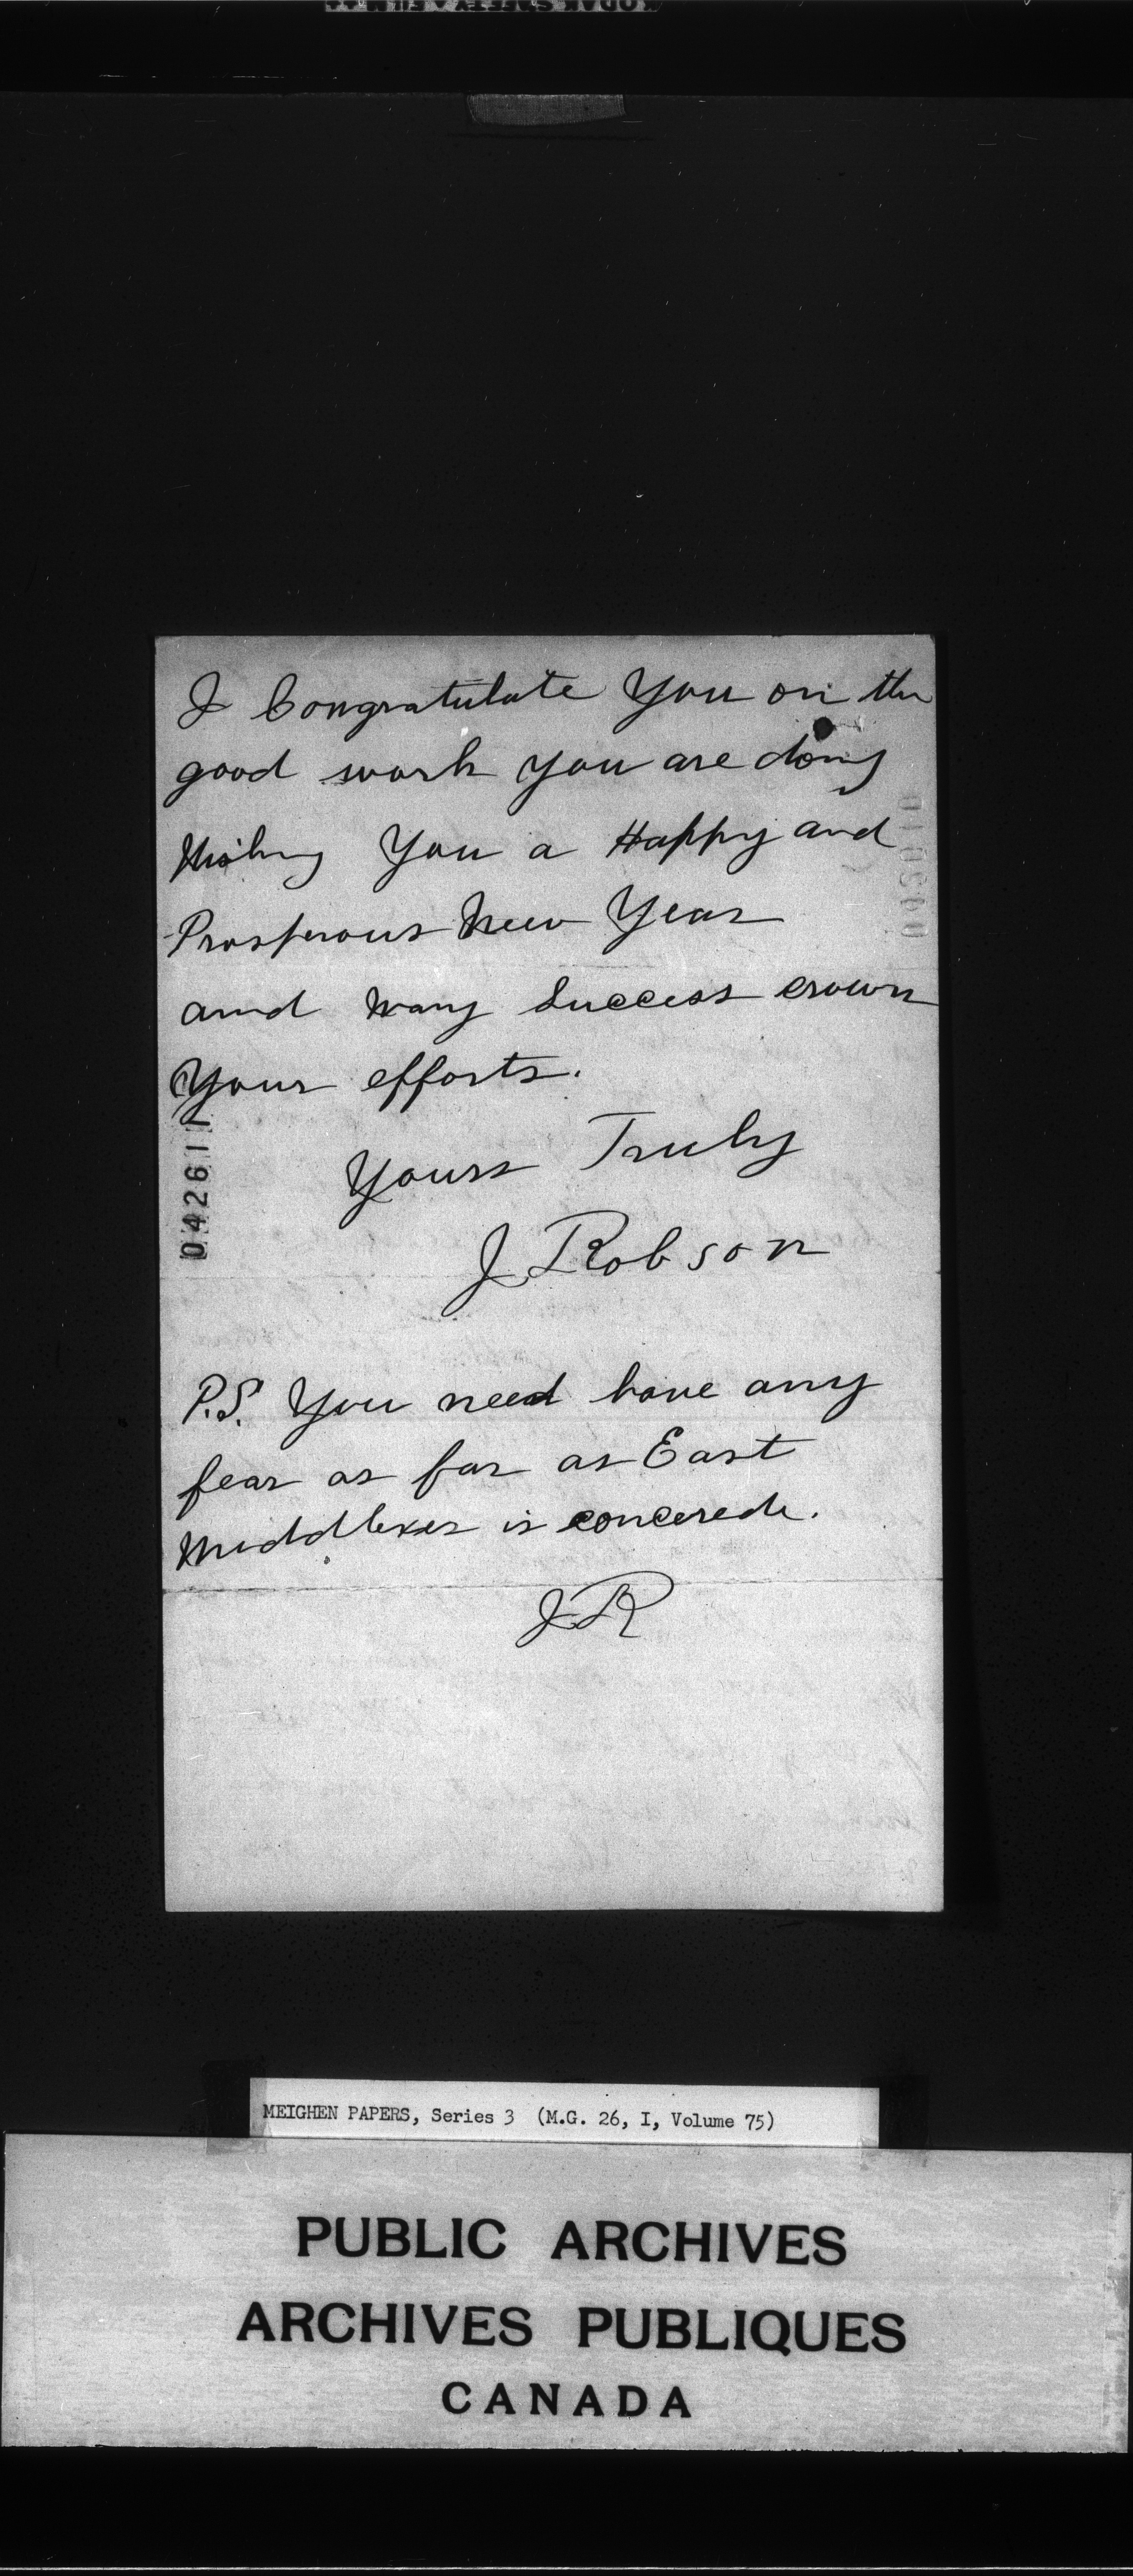 I Congratulate You on the
good work you are doing
Wishing You a Happy and
Prosperous New Year
and many Success crown
Your efforts.
Yours Truly
J Robson
042611
P.S. You need have any
fear as far as East
Middlexes is concerede.
JR
MEIGHEN PAPERS, Series 3 (M.G. 26, I, Volume 75)
PUBLIC ARCHIVES
ARCHIVES PUBLIQUES
CANADA